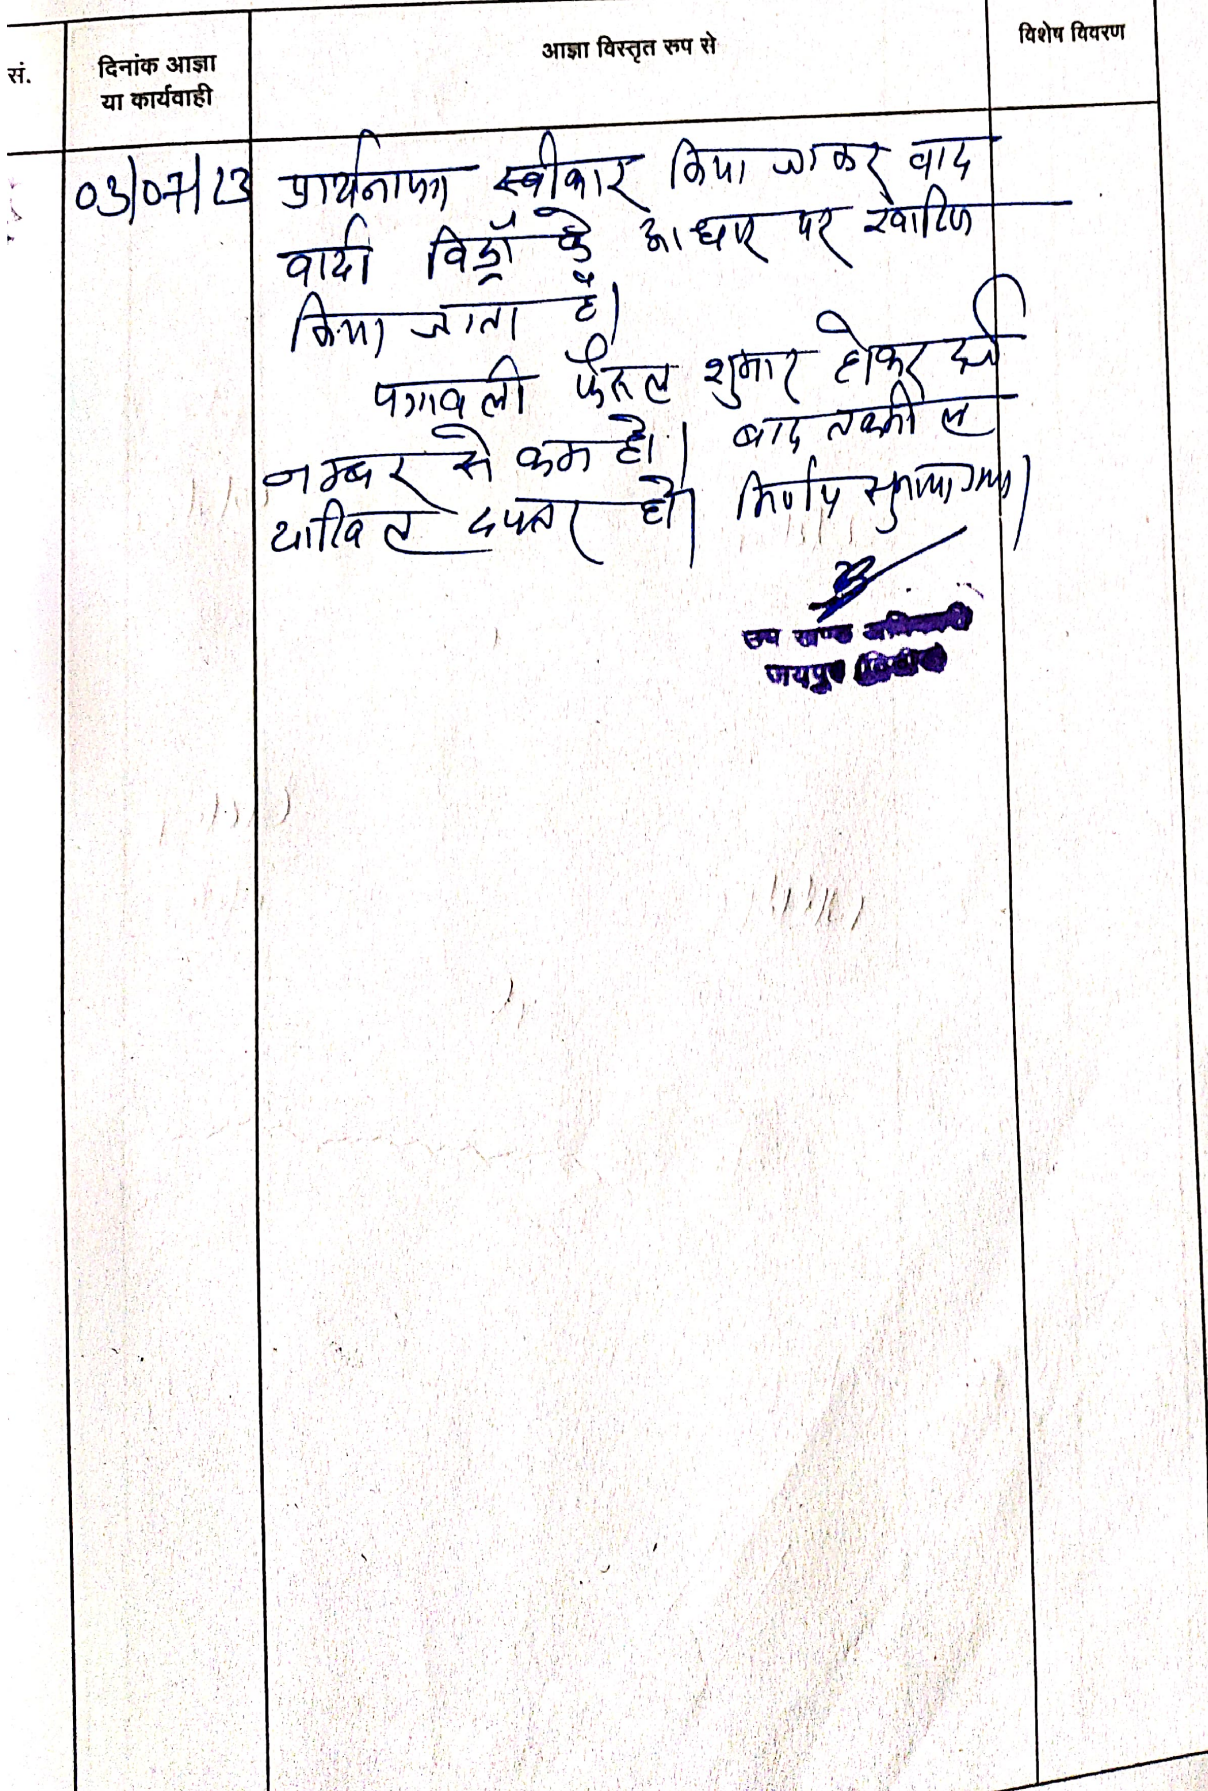 सं.
दिनांक आज्ञा
या कार्यवाही
आज्ञा विस्तृत रुप से
विशेष विवरण
03/07/23
प्रार्थनापत्र स्वीकार किया जाकर वाद
वादी विड्रॉ के आधार पर खारिज
किया जाता है।
पत्रावली फैसल शुमार होकर दर्ज
नम्बर से कम हो। बाद तकमील
दाखिल दफ्तर हो। निर्णय सुनाया गया।
उप खण्ड अधिकारी
जयपुर